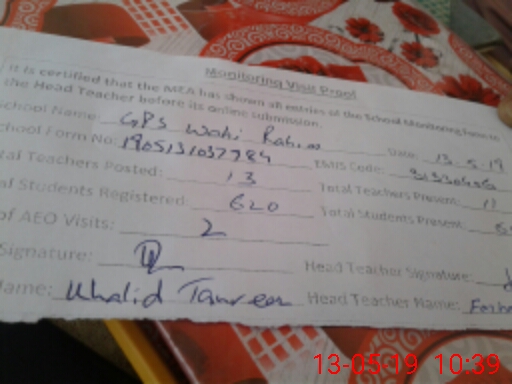 Monitoring Visit Proof
It is certified that the MEA has shown all entries of the School Monitoring Form to
the Head Teacher before its online submission.
School Name: GPS Wahi Rahim Date: 13-5-19
School Form No: 1905131037784 EMIS Code:
tal Teachers Posted: 13 Total Teachers Present: 11
al Students Registered: 620 Total Students Present:
of AEO Visits: 2
Signature: Head Teacher Signature:
Name: Khalid Tanveer Head Teacher Name:
13-05-19 10:39